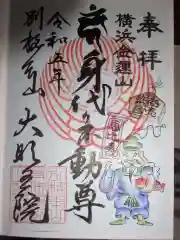 奉拝
横浜金運山
身代り不動尊
令和五年
別格本山 大明王院